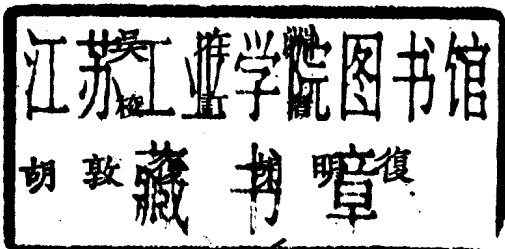 江苏工业学院图书馆
藏书章
胡 敦 明 復